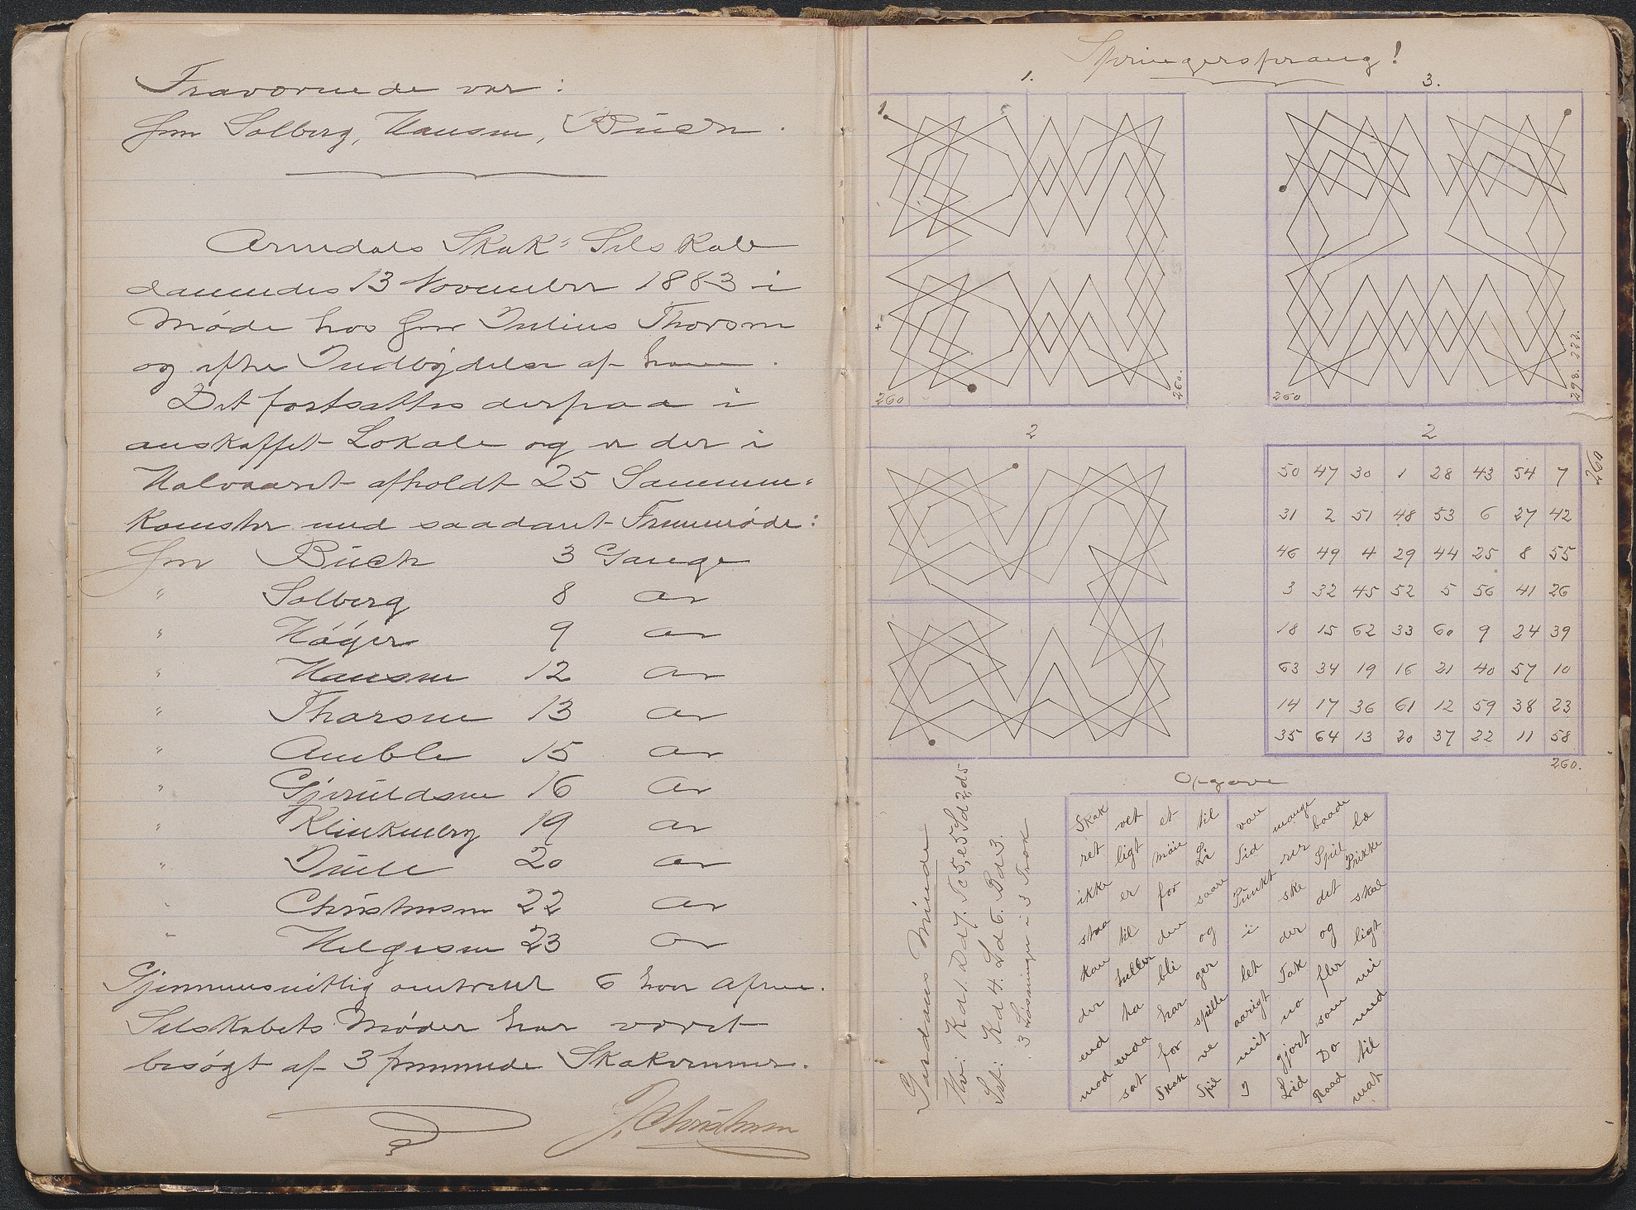 Fraværende var:
Hrr Solberg, Hansen, Büch.
Arendals Skak-Selskab
dannedes 13 November 1883 i
Møde hos Hrr Julius Thorsen
og efter Indbydelse af ham.
Det fortsattes derpaa i
anskaffet Lokale og er der i
Halvaaret afholdt 25 Sammen-
komster med saadant Fremmøde:
Hrr Büch 3 Gange
" Solberg 8 do
" Høyer 9 do
" Hansen 12 do
" Thorsen 13 do
" Amble 15 do
" Gjeruldsen 16 do
" Klinkenberg 19 do
" Juell 20 do
" Christensen 22 do
" Helgesen 23 do
Gjennemsnitlig omtrent 6 hver Aften.
Selskabets Møder har været
besøgt af 3 fremmede Skakvenner.
Springersprang!
1. 3.
1
260 260.
260 298. 222.
2 2
50 47 30 1 28 43 54 7 260
31 2 51 48 53 6 27 42
46 49 4 29 44 25 8 55
3 32 45 52 5 56 41 26
18 15 62 33 60 9 24 39
63 34 19 16 21 40 57 10
14 17 36 61 12 59 38 23
35 64 13 20 37 22 11 58
260.
Opgave
Skak vet et til vare mange baade la
ret ligt møie Li Tid rer Spil Prikke
ikke er for saare Punkt ske det skal
staa til den og i der og ligt
kan heller bli ger let Tak fler mi
der ha har spille aarigt no som med
end enda for ve mit gjort Do til
mod sat Skak Spil I Lid Raad mat
Hv: Kd1. Dd7. Tc5, e5 Sd2, d5
Sst: Kd4. Ld6. Bd3.
3 Løsninger i 3 Træk